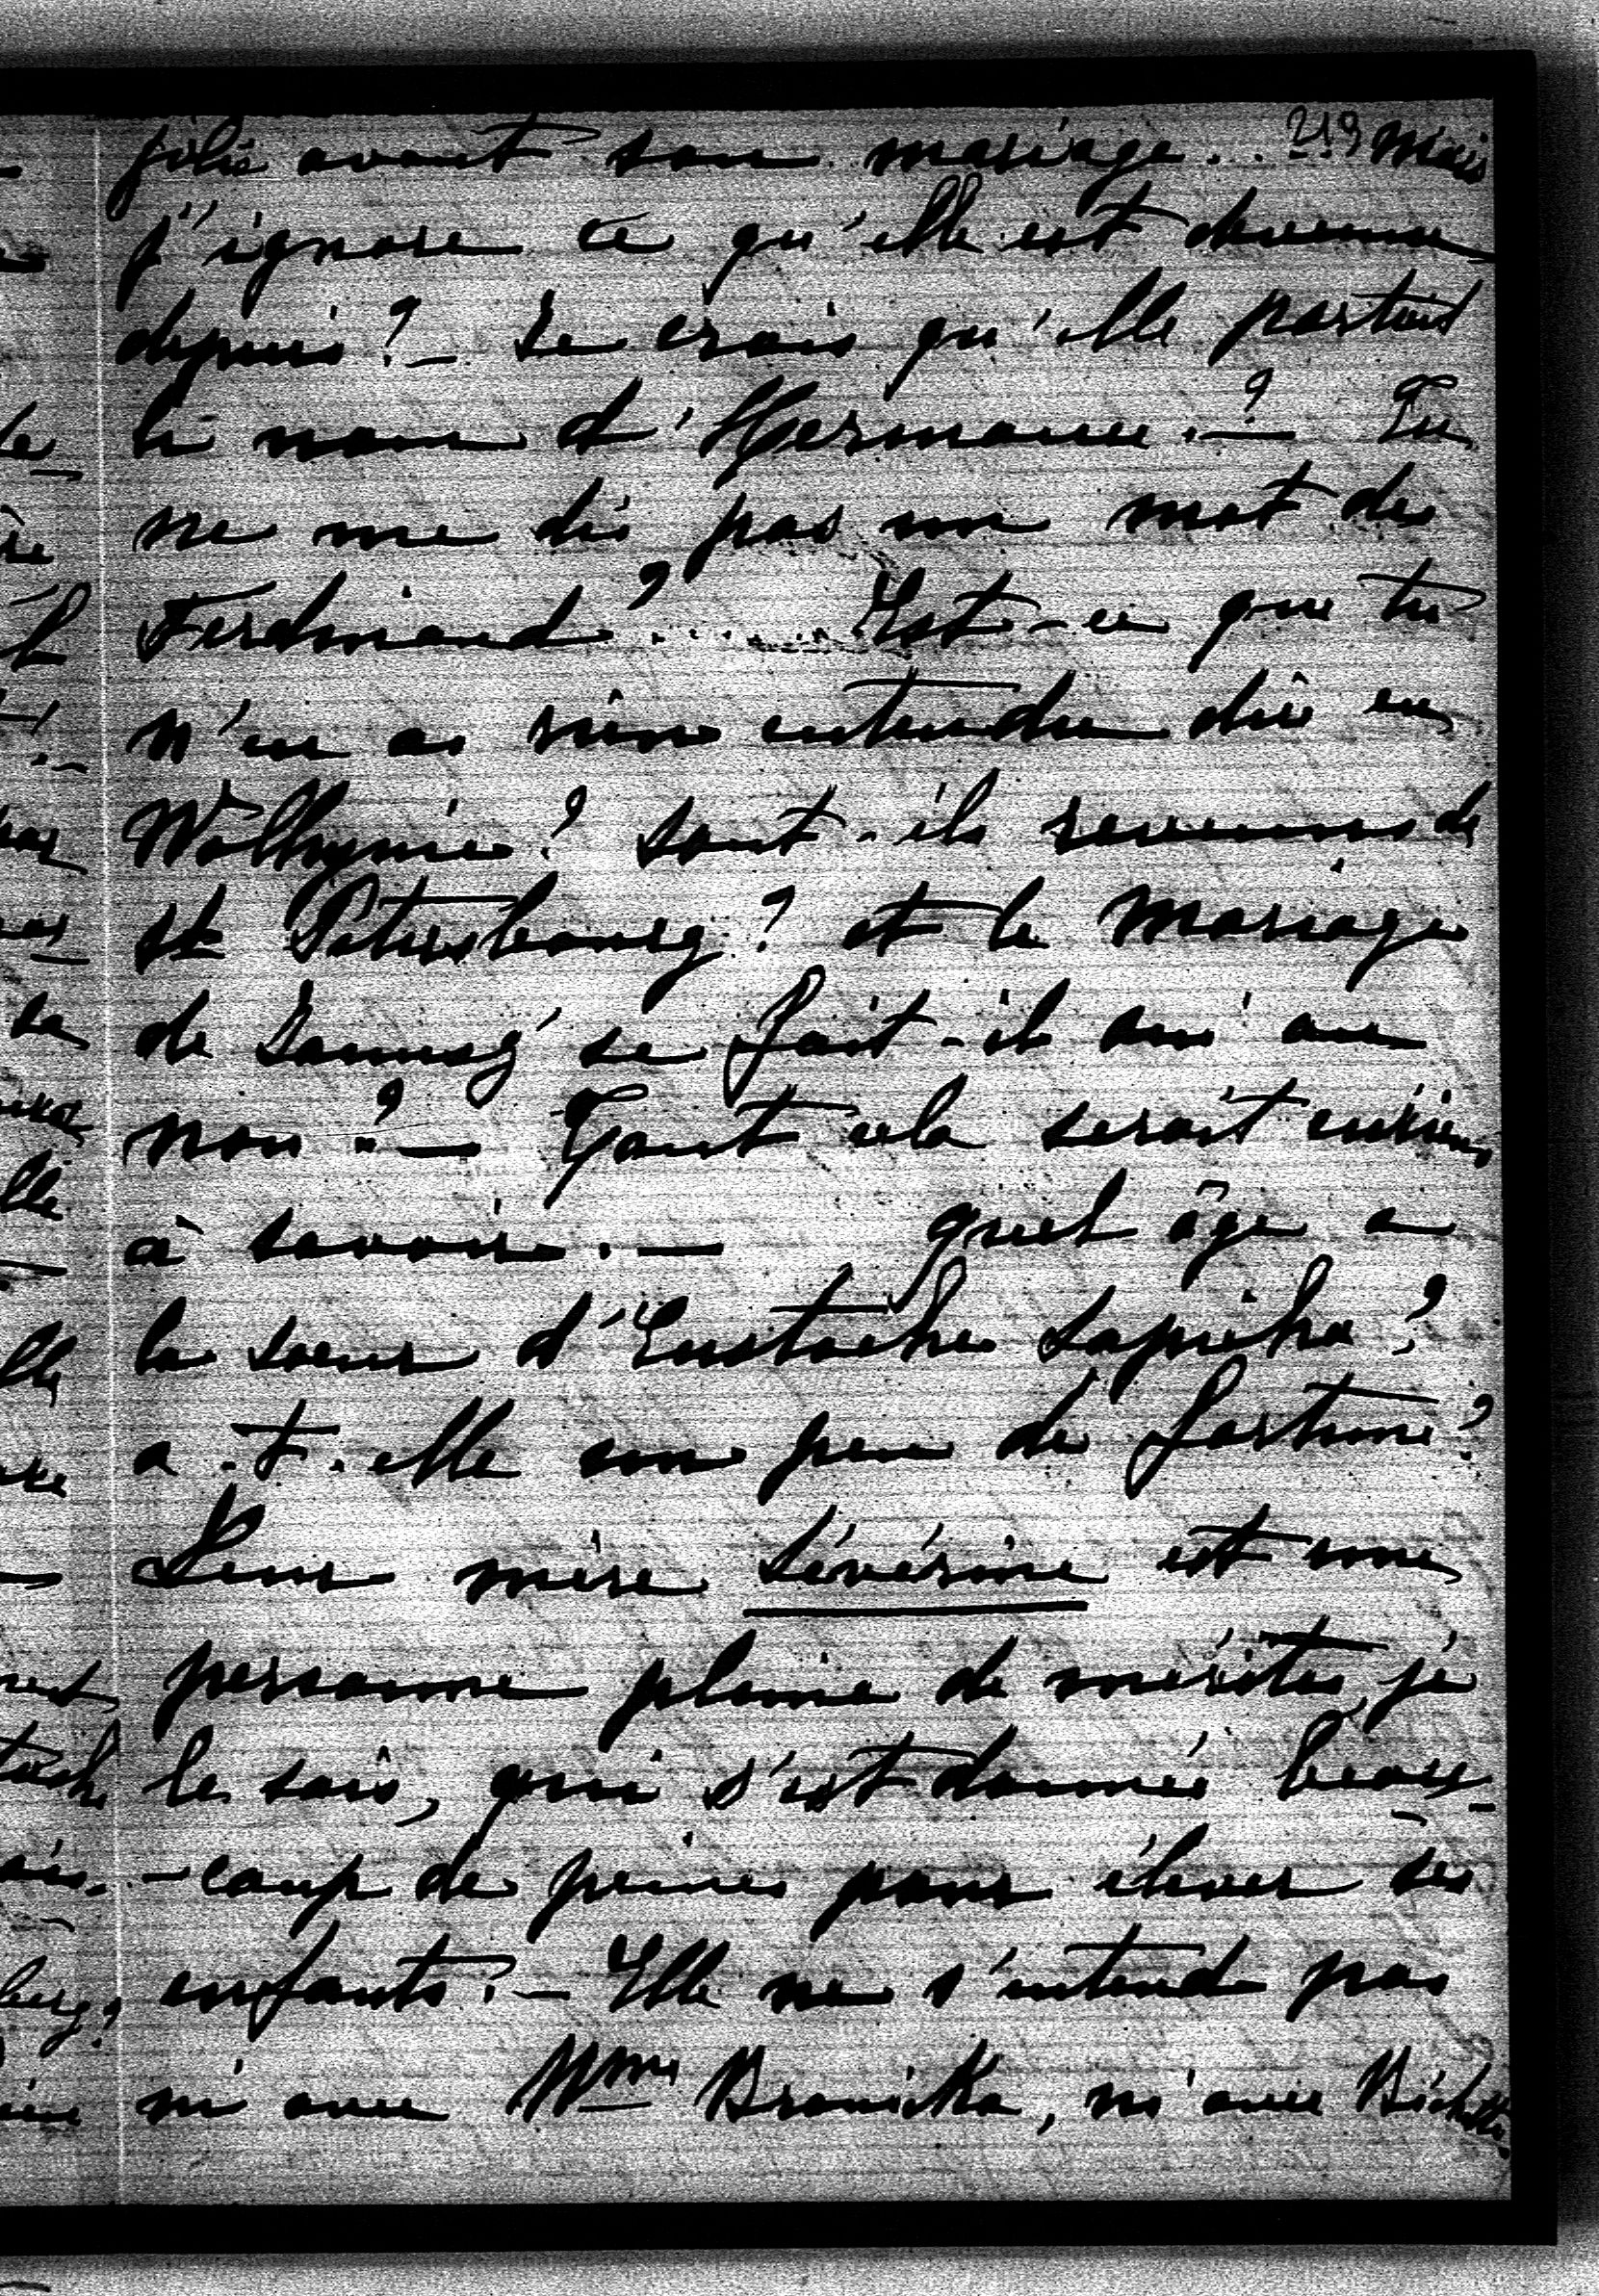 219
jolie avant son mariage... mais
j'ignore ce qu'elle est devenue
depuis? - Je crois qu'elle portait
le nom d'Hermance. -? Tu
ne me dis pas un mot des
Ferdinand? ..... Est-ce que tu
n'en as rien entendu dire en
Wolhynie? sont-ils revenus de
St Pétersbourg? et le mariage
de se fait-il oui ou
non? - Tout cela serait curieux
à savoir. - quel âge a
la soeur d'Eustache Sapieha?
a-t-elle un peu de fortune?
Leur mère Sévérine est une
personne pleine de mérites, je
le sais, qui s'est donnée beau-
-coup de peines pour élever ses
enfants. - Elle ne s'entend pas
ni avec Mme Branicka, ni avec Bichette